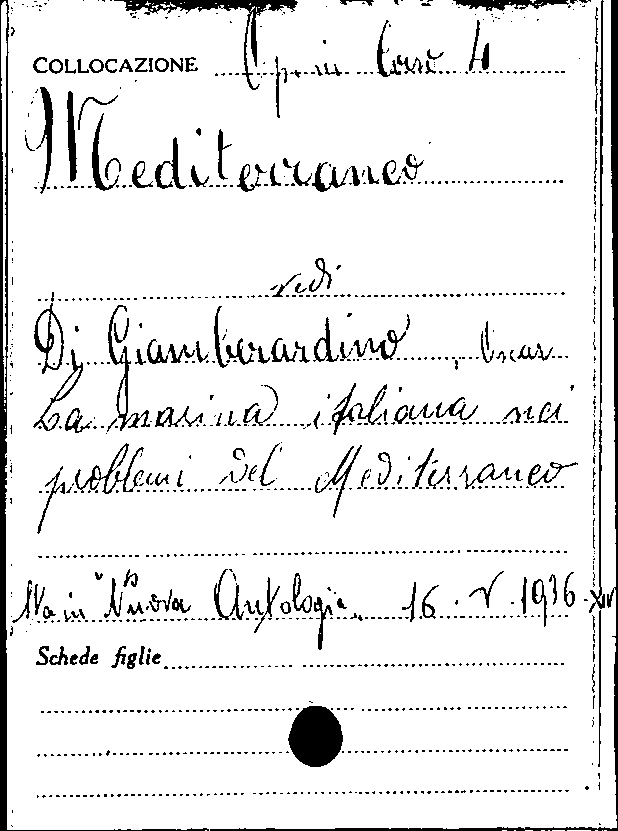 COLLOCAZIONE Op. in Corso 4
Mediterraneo
vedi
Di Giamberardino, Oscar
La marina italiana nei
problemi del Mediterraneo
Sta in "Nuova Antologia" 16. V. 1936. XIV
Schede figlie